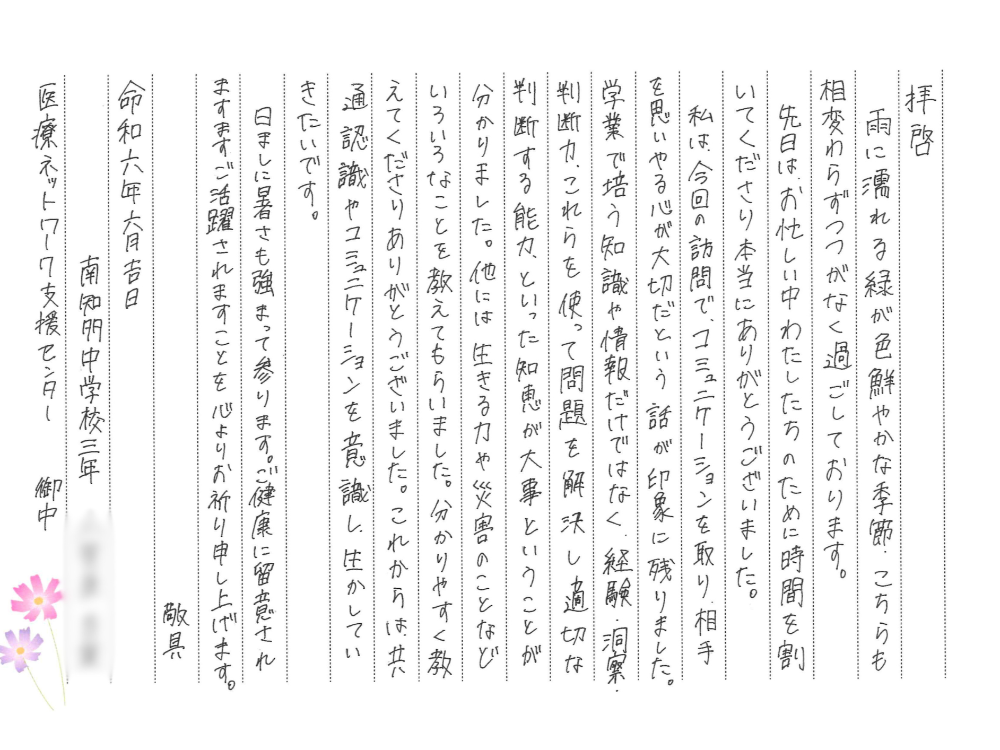 拝啓
雨に濡れる緑が色鮮やかな季節、こちらも
相変わらずつつがなく過ごしております。
先日は、お忙しい中わたしたちのために時間を割
いてくださり本当にありがとうございました。
私は、今回の訪問で、コミュニケーションを取り、相手
を思いやる心が大切だという話が印象に残りました。
学業で培う知識や情報だけではなく、経験、洞察、
判断力、これらを使って問題を解決し適切な
判断する能力、といった知恵が大事ということが
分かりました。他には生きる力や災害のことなど
いろいろなことを教えてもらいました。分かりやすく教
えてくださりありがとうございました。これからは、共
通認識やコミュニケーションを意識し、生かしてい
きたいです。
日ましに暑さも強まって参ります。ご健康に留意され
ますますご活躍されますことを心よりお祈り申し上げます。
敬具
命和六年六月吉日
南知多中学校三年
医療ネットワーク支援センター 御中